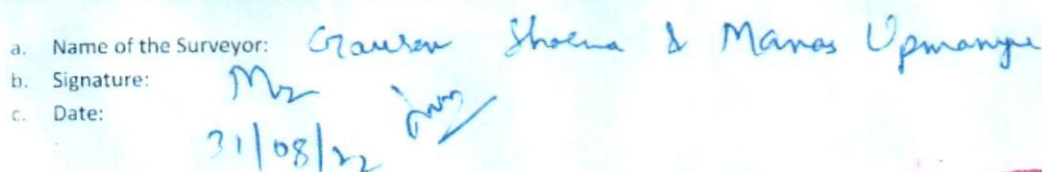 a. Name of the Surveyor: Gaurav Sharma & Manas Upmanyu
b. Signature:
c. Date:
31/08/22